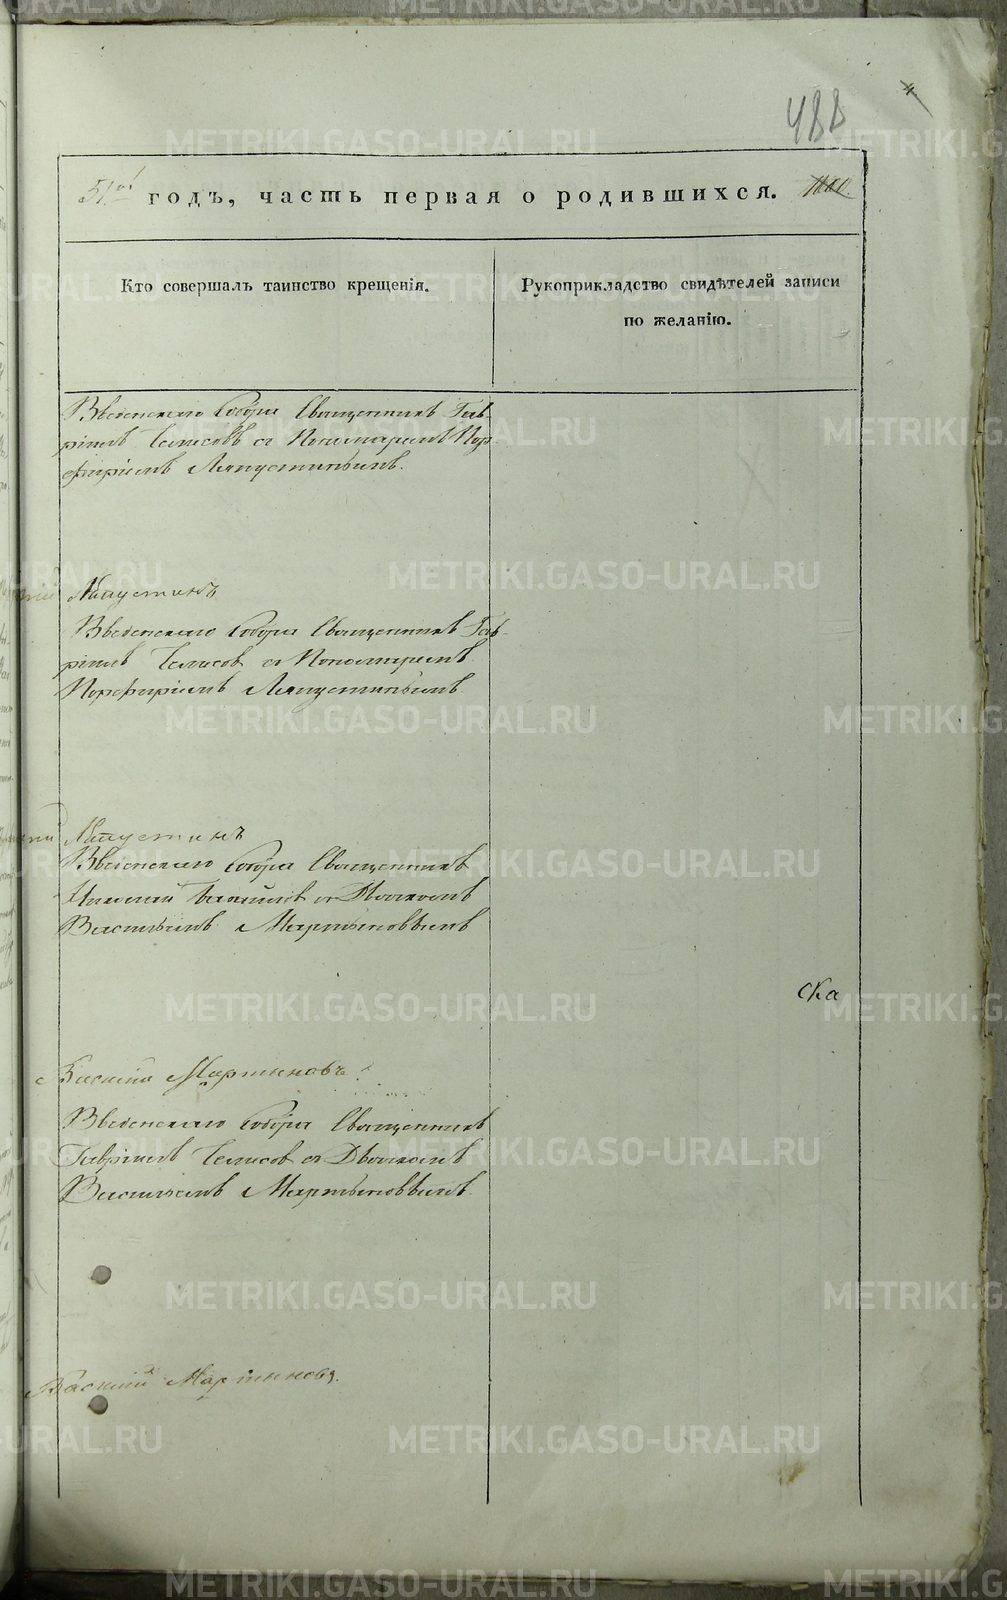 488
51й годъ, часть первая о родившихся.
Кто совершалъ таинство крещенія.
Рукоприкладство свидѣтелей записи
по желанію.
Введенскаго Собора Священникъ Гав-
ріилъ с Пономаремъ Пор-
фиріемъ Ляпустинымъ.
Ляпустинъ
Введенскаго Собора Священникъ Гав-
ріилъ с Пономаремъ
Порфиріемъ Ляпустинымъ
Ляпустинъ
Введенскаго Собора Священникъ
Николай с Дьякомъ
Васильемъ Мартыновымъ
ска
Василий Мартиновъ
Введенскаго Собора Священникъ
Гавріилъ с Дьякомъ
Васильемъ Мартыновымъ
Василий Мартиновъ.
METRIKI.GASO-URAL.RU